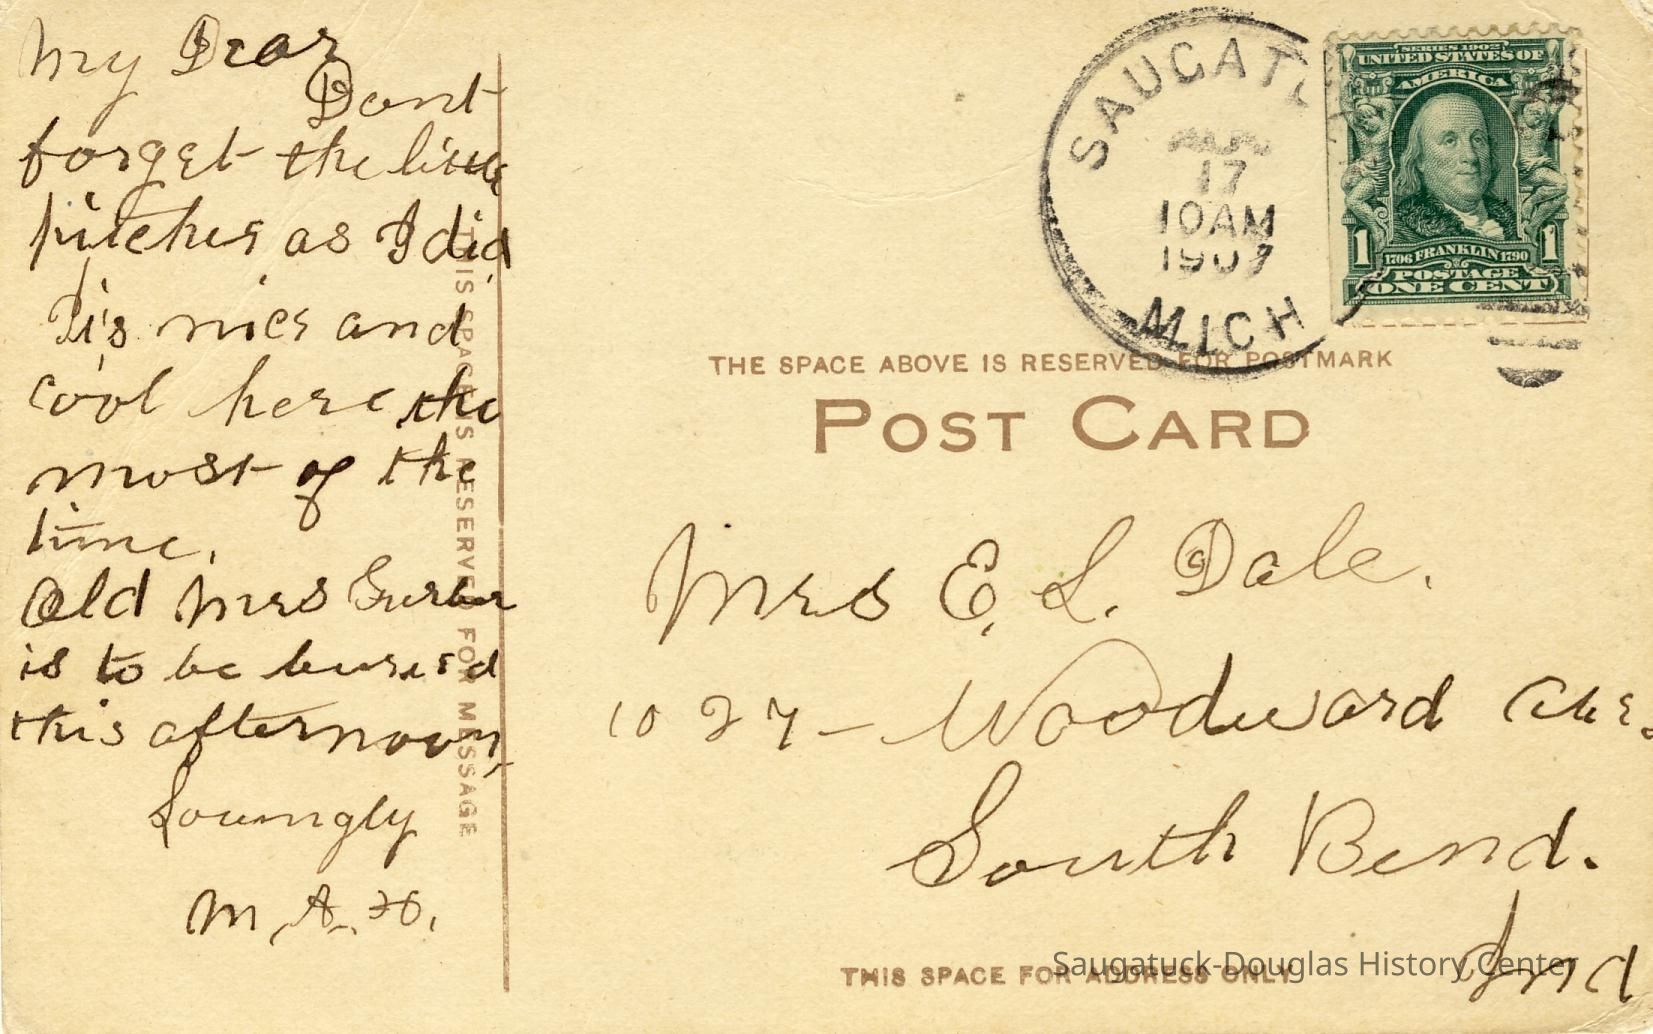 My Dear
Dont
forget the little
pitcher as I did
It's nice and
cool here the
most of the
time.
Old Mrs Gerber
is to be buried
this afternoon,
Lovingly
M.A.H.
THIS SPACE IS RESERVED FOR MESSAGE
SAUGATU
17
10AM
1907
MICH
SERIES 1902
UNITED STATES OF
AMERICA
1706 FRANKLIN 1790
1 1
POSTAGE
ONE CENT
THE SPACE ABOVE IS RESERVED FOR POSTMARK
POST CARD
Mrs E. L. Dale.
1027 - Woodward Ave.
South Bend.
Ind
THIS SPACE FOR ADDRESS ONLY
Saugatuck-Douglas History Center